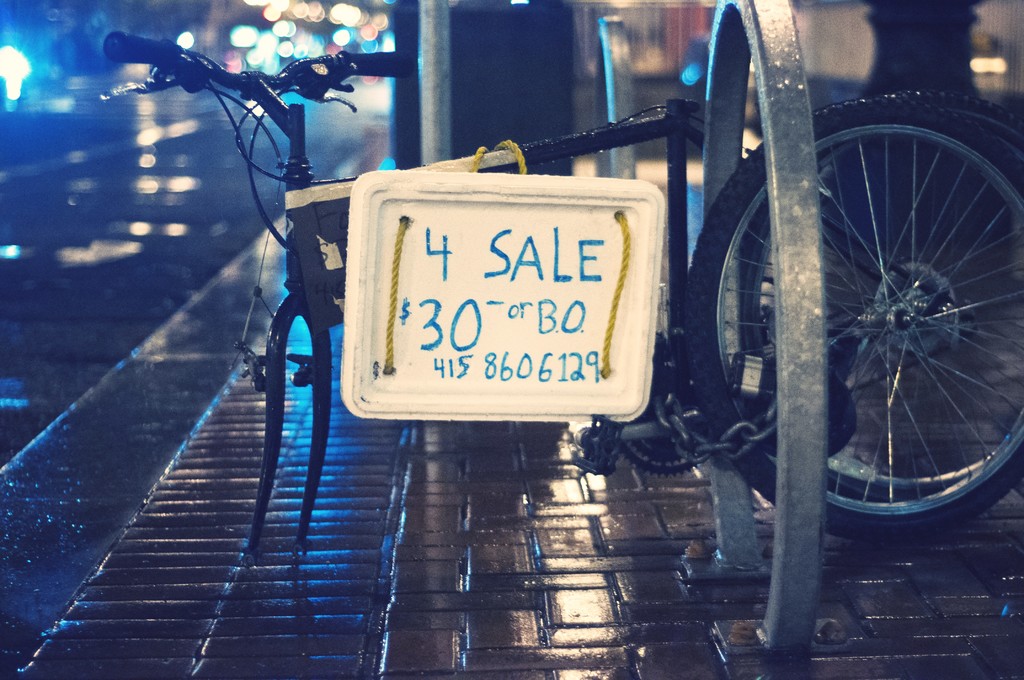 4 SALE
$30- or B.O.
415 8606129